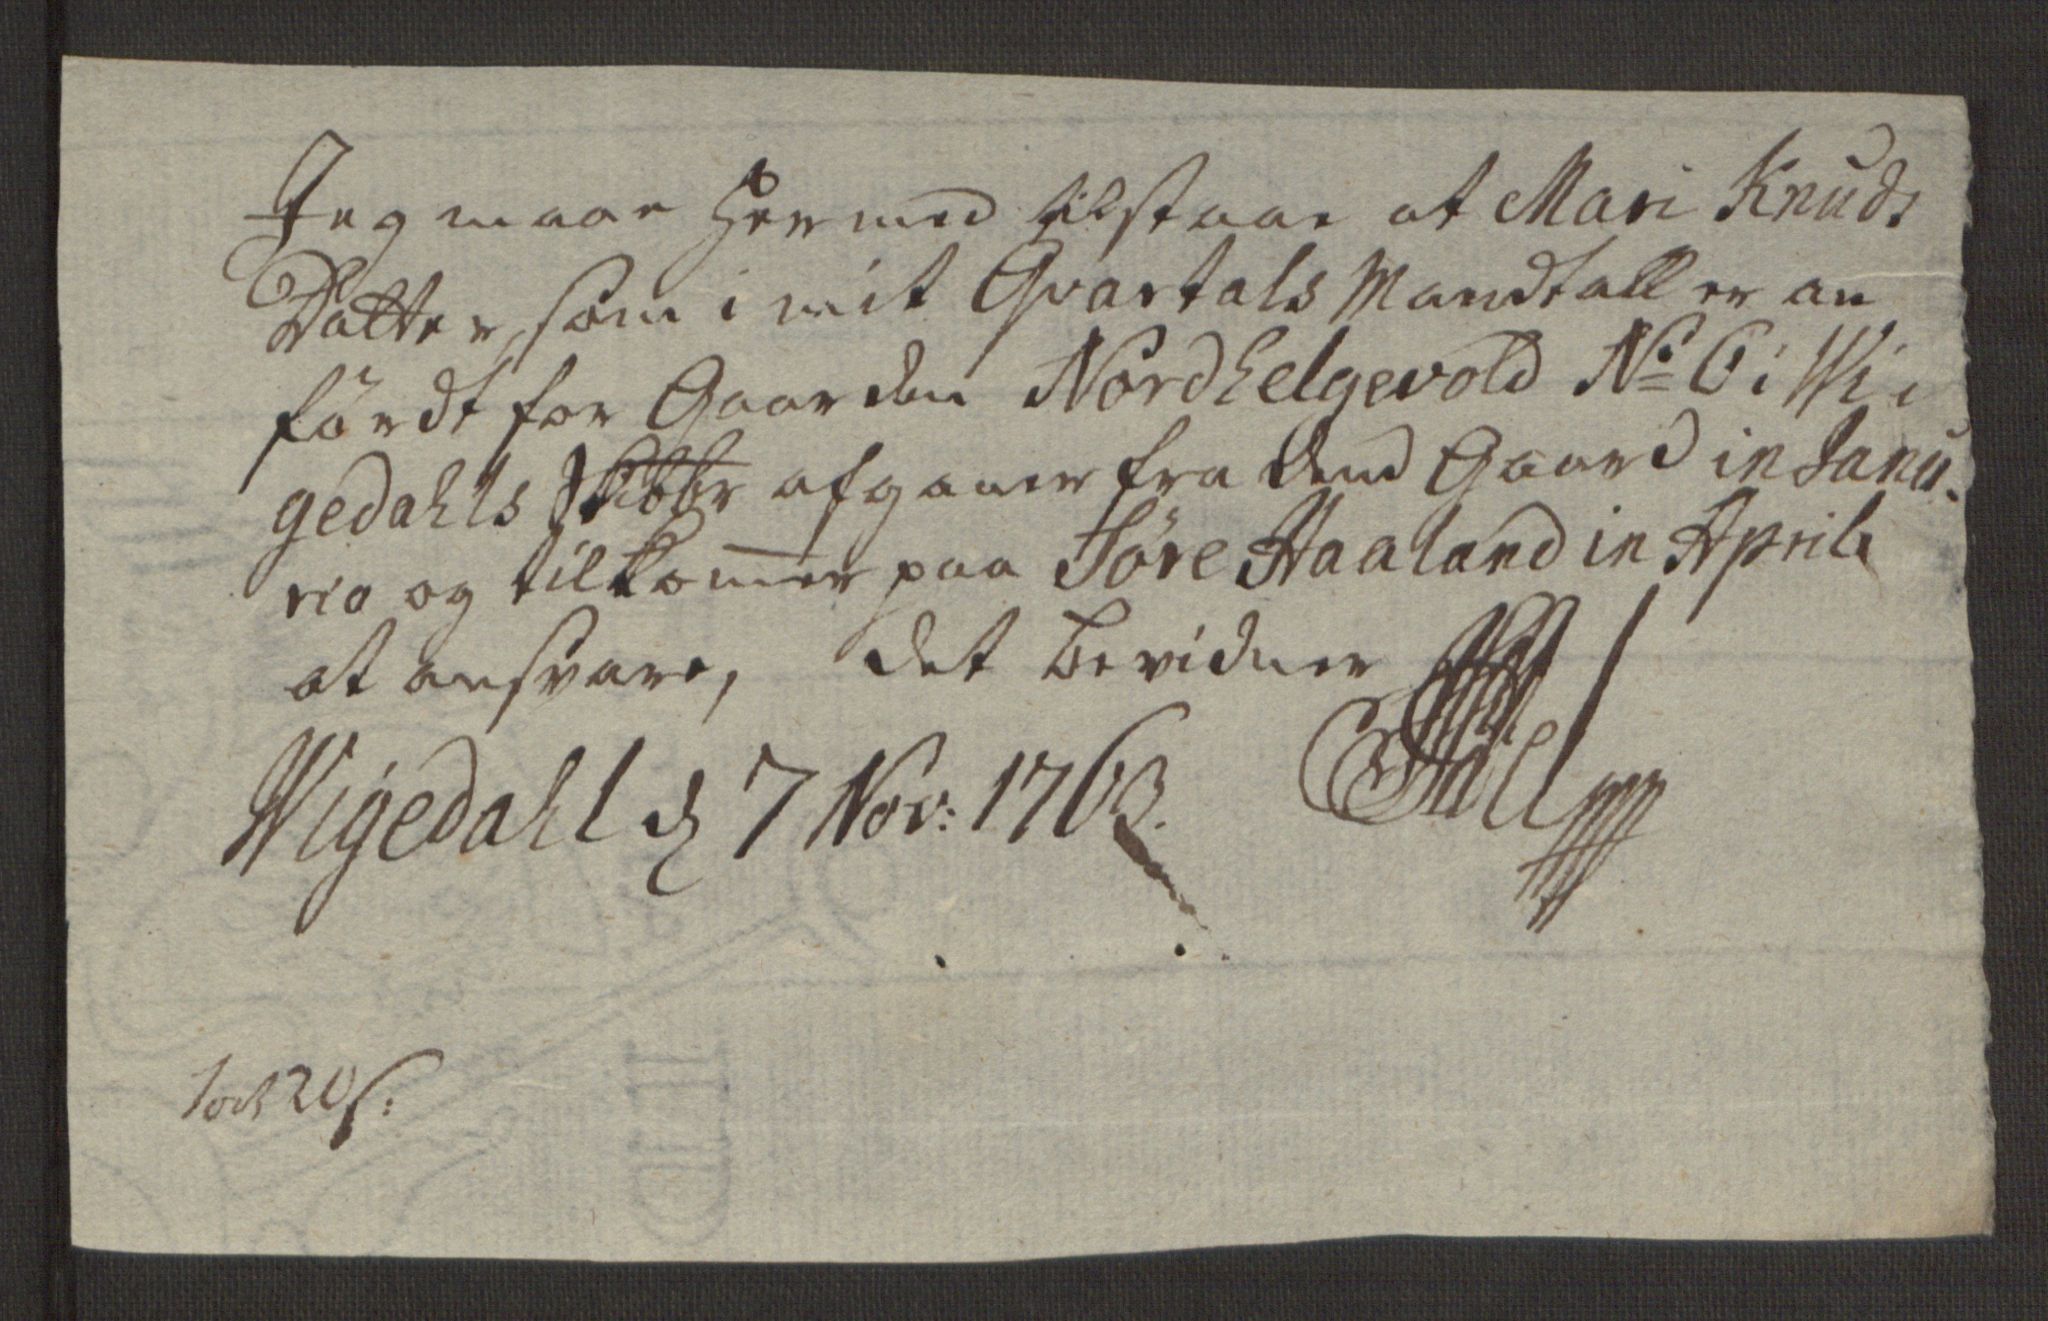 Jeg maae Hermed tilstaae at Mari Knuds
Datter, som i mit Qvartals Mandtall er an
fördt for Gaarden Nordhelgevold No 6 i Wi
gedahls Skibbr afgaaer fra dend Gaard in Janu¬
rio og tilkomer paa Söre Haaland in Aprili
at ansvare, det bevidner
Wigedahl d 7 Nov: 1763.